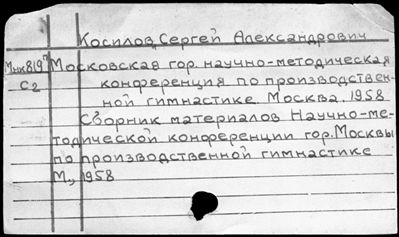 Косилов, Сергей Александрович
Мик819" Московская гор. научно-методическая
С2 конференция по производствен-
ной гимнастике. Москва. 1958
Сборник материалов Научно-ме-
тодической конференции гор. Москвы
по производственной гимнастике
М., 1958